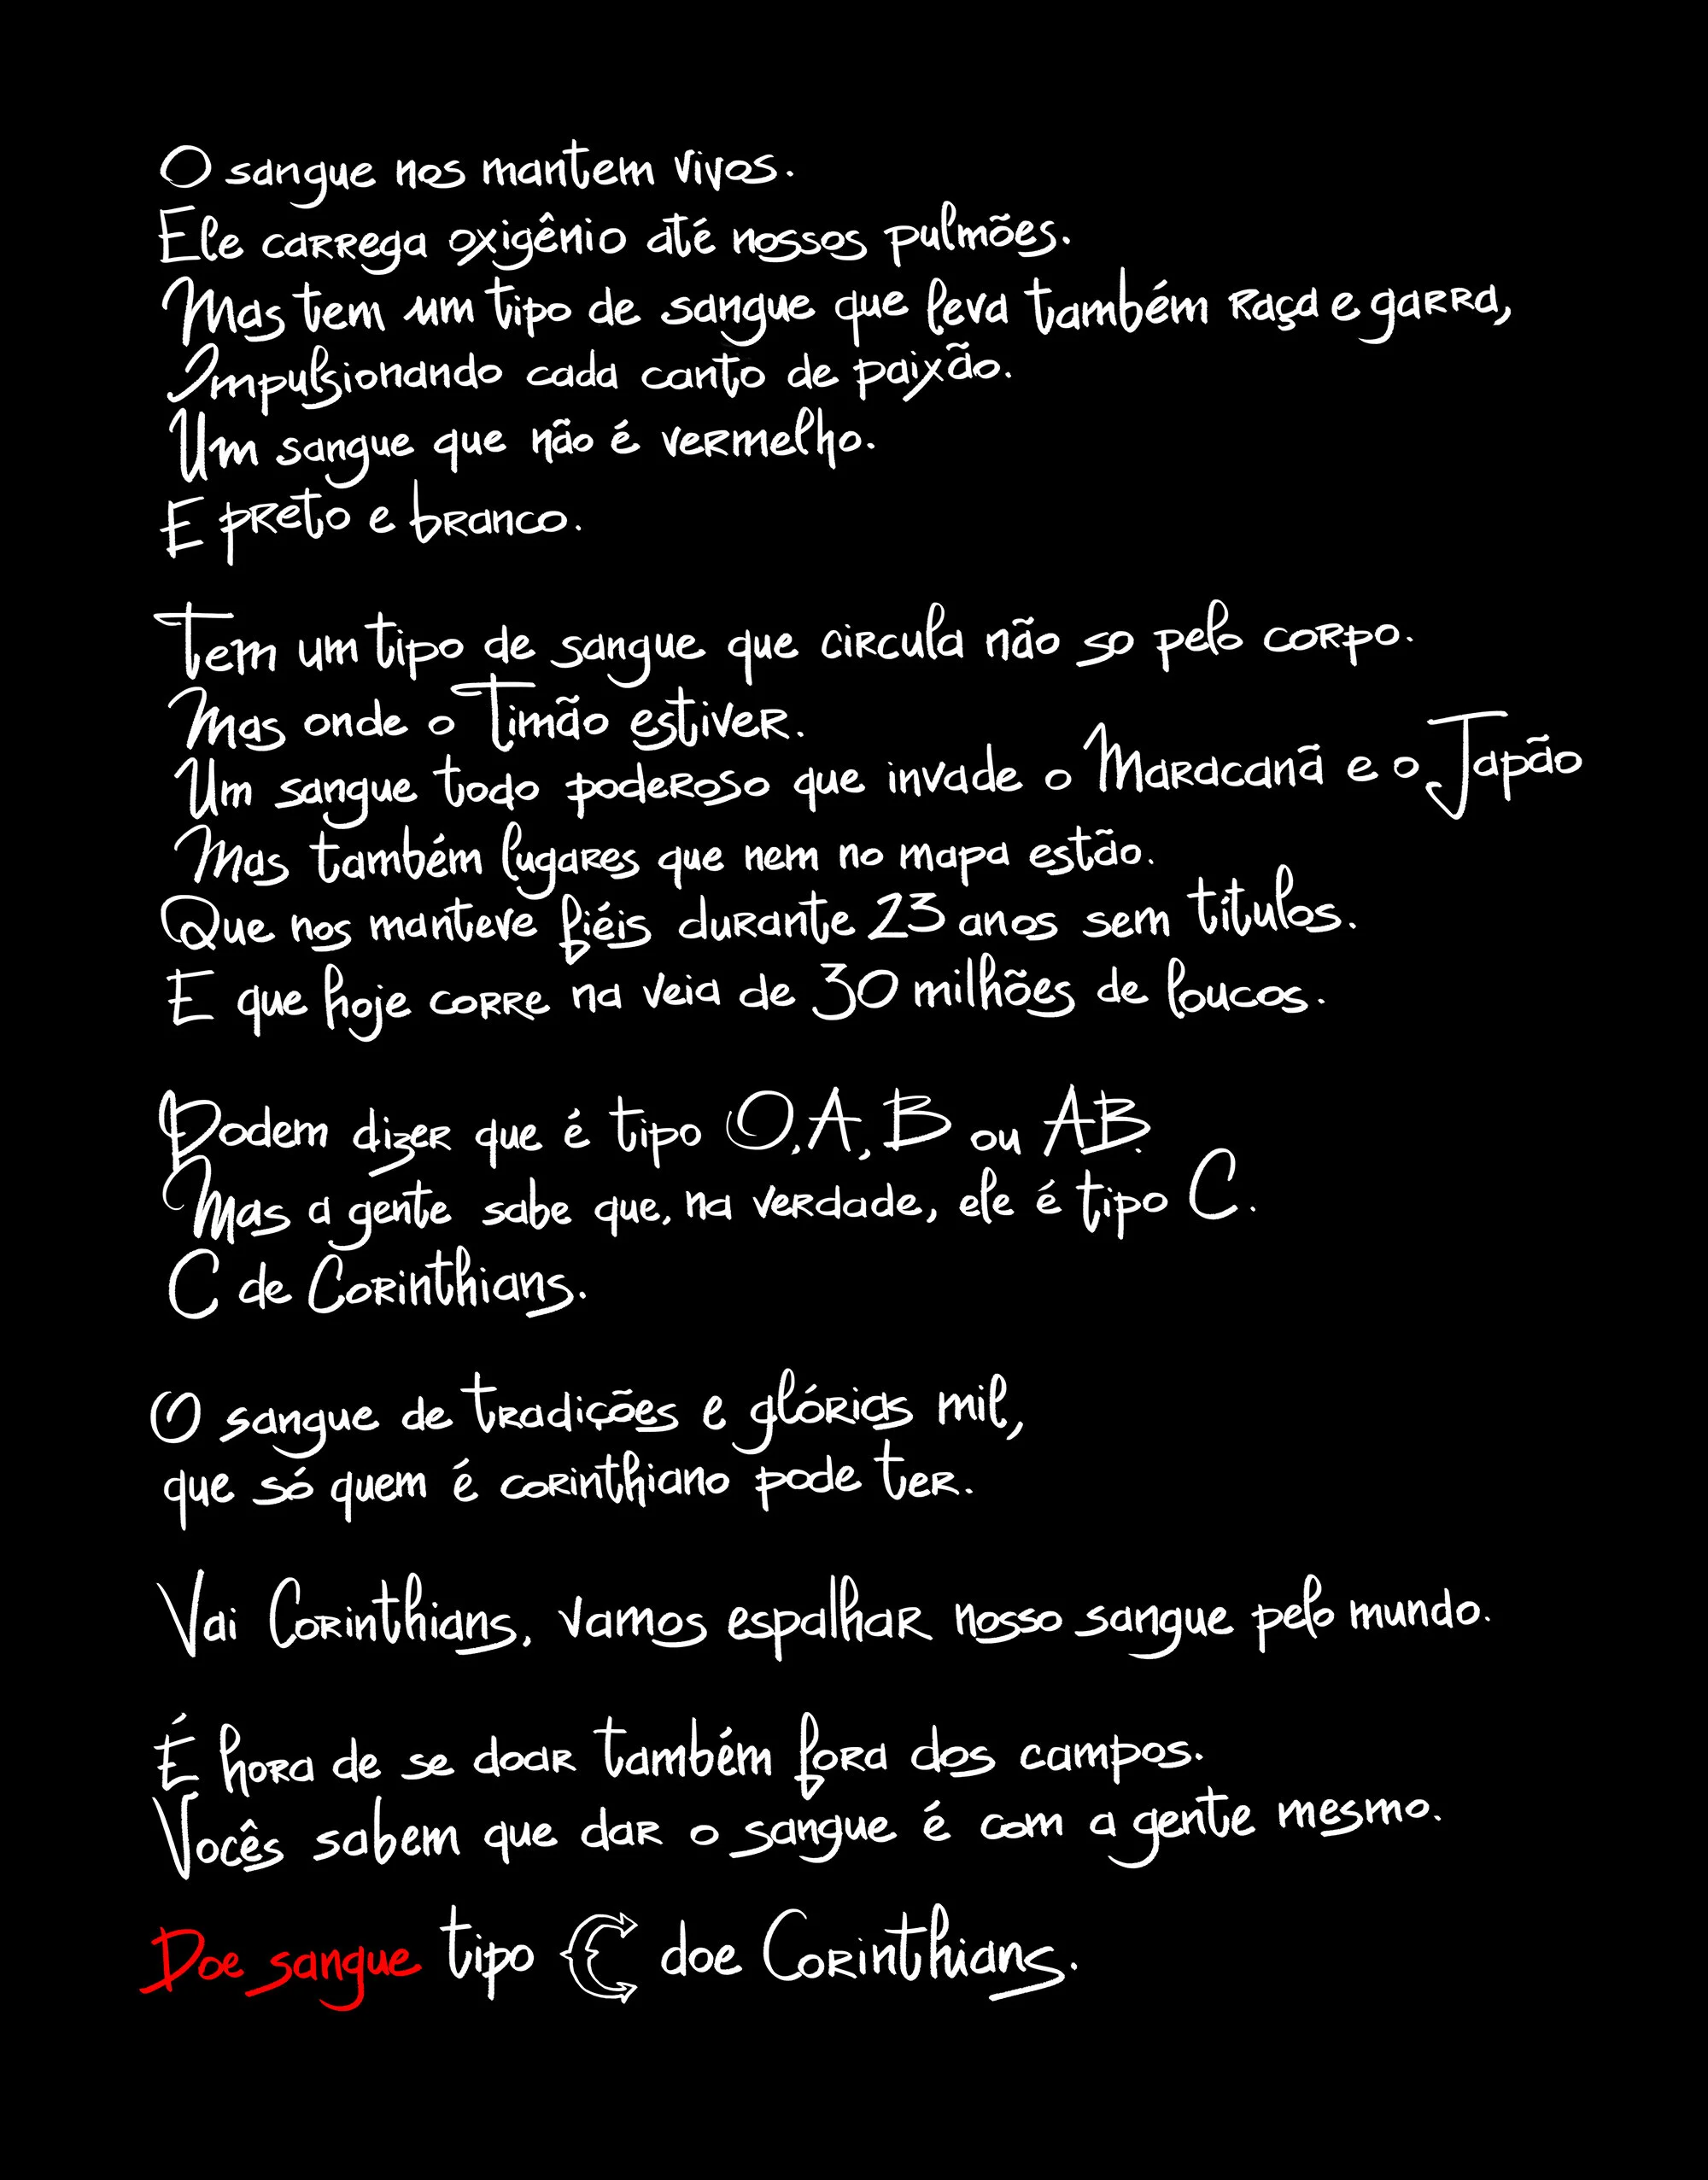 O sangue nos mantem vivos.
Ele carrega oxigênio até nossos pulmões.
Mas tem um tipo de sangue que leva também raça e garra,
Impulsionando cada canto de paixão.
Um sangue que não é vermelho.
E preto e branco.
Tem um tipo de sangue que circula não so pelo corpo.
Mas onde o Timão estiver.
Um sangue todo poderoso que invade o Maracanã e o Japão
Mas também lugares que nem no mapa estão.
Que nos manteve fiéis durante 23 anos sem títulos.
E que hoje corre na veia de 30 milhões de loucos.
Podem dizer que é tipo O, A, B ou AB.
Mas a gente sabe que, na verdade, ele é tipo C.
C de Corinthians.
O sangue de tradições e glórias mil,
que só quem é corinthiano pode ter.
Vai Corinthians, vamos espalhar nosso sangue pelo mundo.
É hora de se doar também fora dos campos.
Vocês sabem que dar o sangue é com a gente mesmo.
Doe sangue tipo C doe Corinthians.